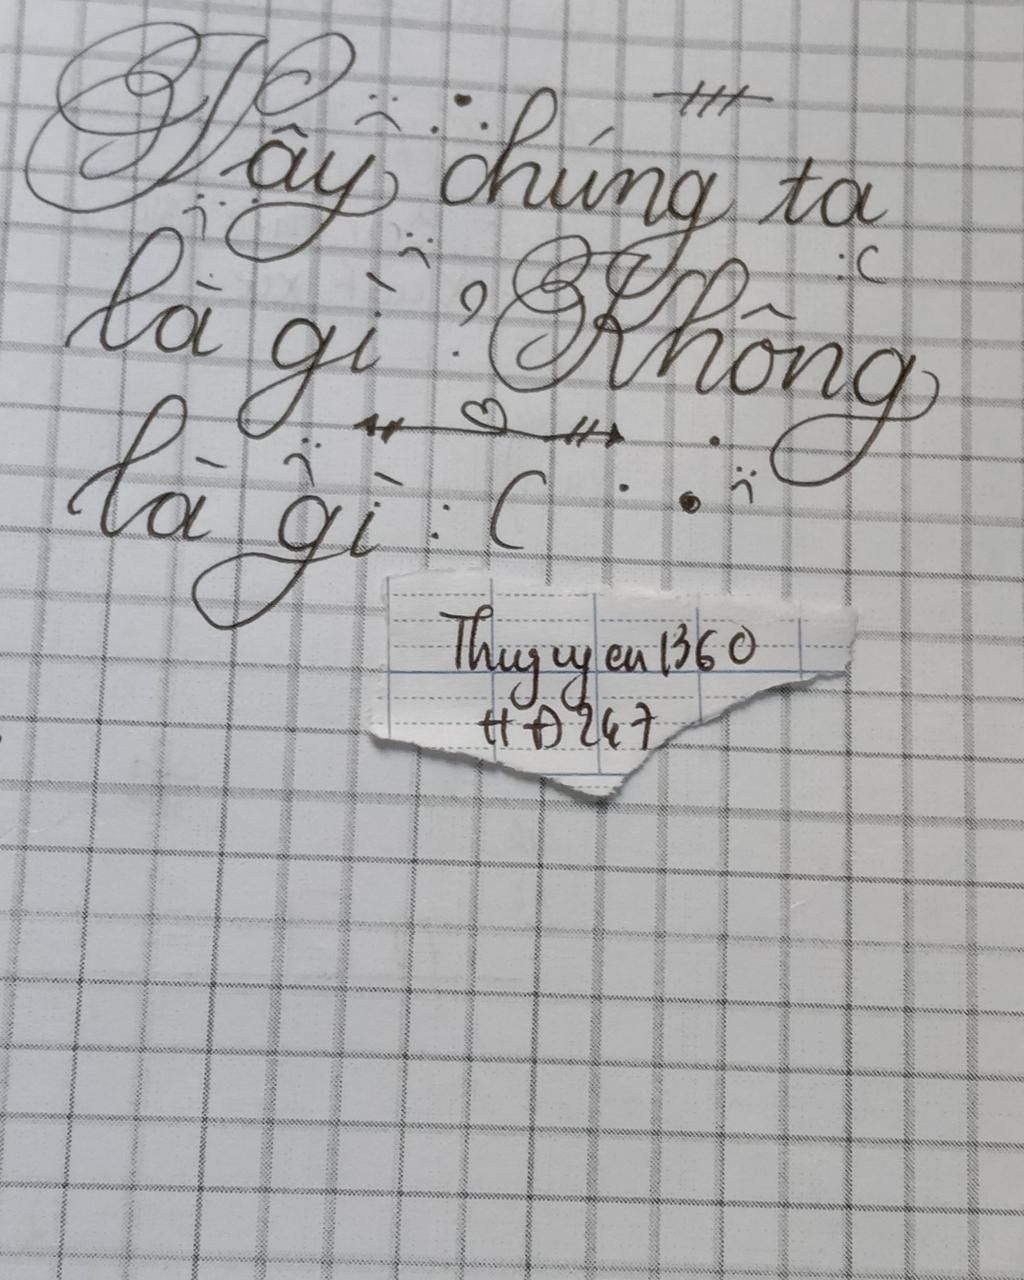 Vậy chúng ta
là gì? Không
là gì :(
:c
Thuyuyen1360
HĐ247